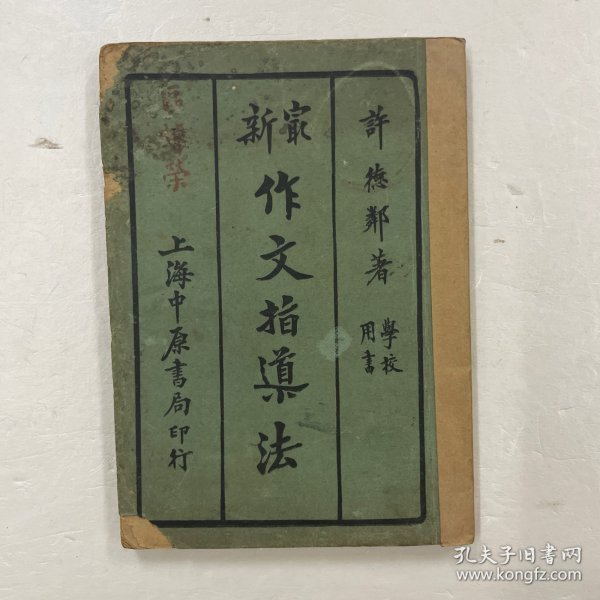 許德鄰著
學校
用書
最新
作文指導法
上海中原書局印行
孔夫子旧书网
www.kongfz.com